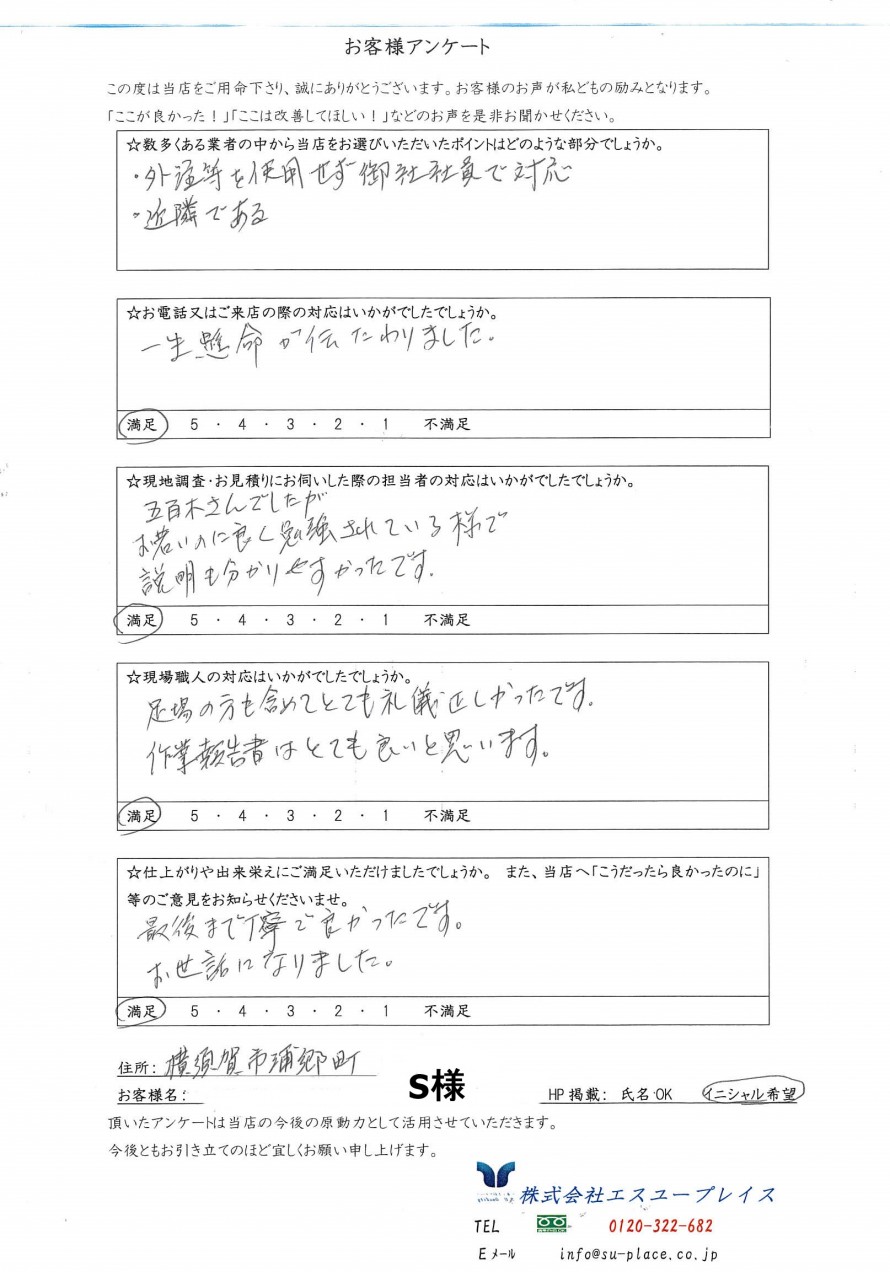 お客様アンケート
この度は当店をご用命下さり、誠にありがとうございます。お客様のお声が私どもの励みとなります。
「ここが良かった！」「ここは改善してほしい！」などのお声を是非お聞かせください。
☆数多くある業者の中から当店をお選びいただいたポイントはどのような部分でしょうか。
・外注等を使用せず御社社員で対応
・近隣である
☆お電話又はご来店の際の対応はいかがでしたでしょうか。
一生懸命が伝たわりました。
満足 5 ・ 4 ・ 3 ・ 2 ・ 1 不満足
☆現地調査・お見積りにお伺いした際の担当者の対応はいかがでしたでしょうか。
五百木さんでしたが
お若いのに良く勉強されている様で
説明も分かりやすかったです.
満足 5 ・ 4 ・ 3 ・ 2 ・ 1 不満足
☆現場職人の対応はいかがでしたでしょうか。
足場の方も含めてとても礼儀正しかったです.
作業報告書はとても良いと思います。
満足 5 ・ 4 ・ 3 ・ 2 ・ 1 不満足
☆仕上がりや出来栄えにご満足いただけましたでしょうか。 また、当店へ「こうだったら良かったのに」
等のご意見をお知らせくださいませ。
最後まで丁寧で良かったです。
お世話になりました。
満足 5 ・ 4 ・ 3 ・ 2 ・ 1 不満足
住所: 横須賀市浦郷町
お客様名: S様 HP掲載: 氏名・OK イニシャル希望
頂いたアンケートは当店の今後の原動力として活用させていただきます。
今後ともお引き立てのほど宜しくお願い申し上げます。
株式会社エスユープレイス
TEL 0120-322-682
Eメール info@su-place.co.jp